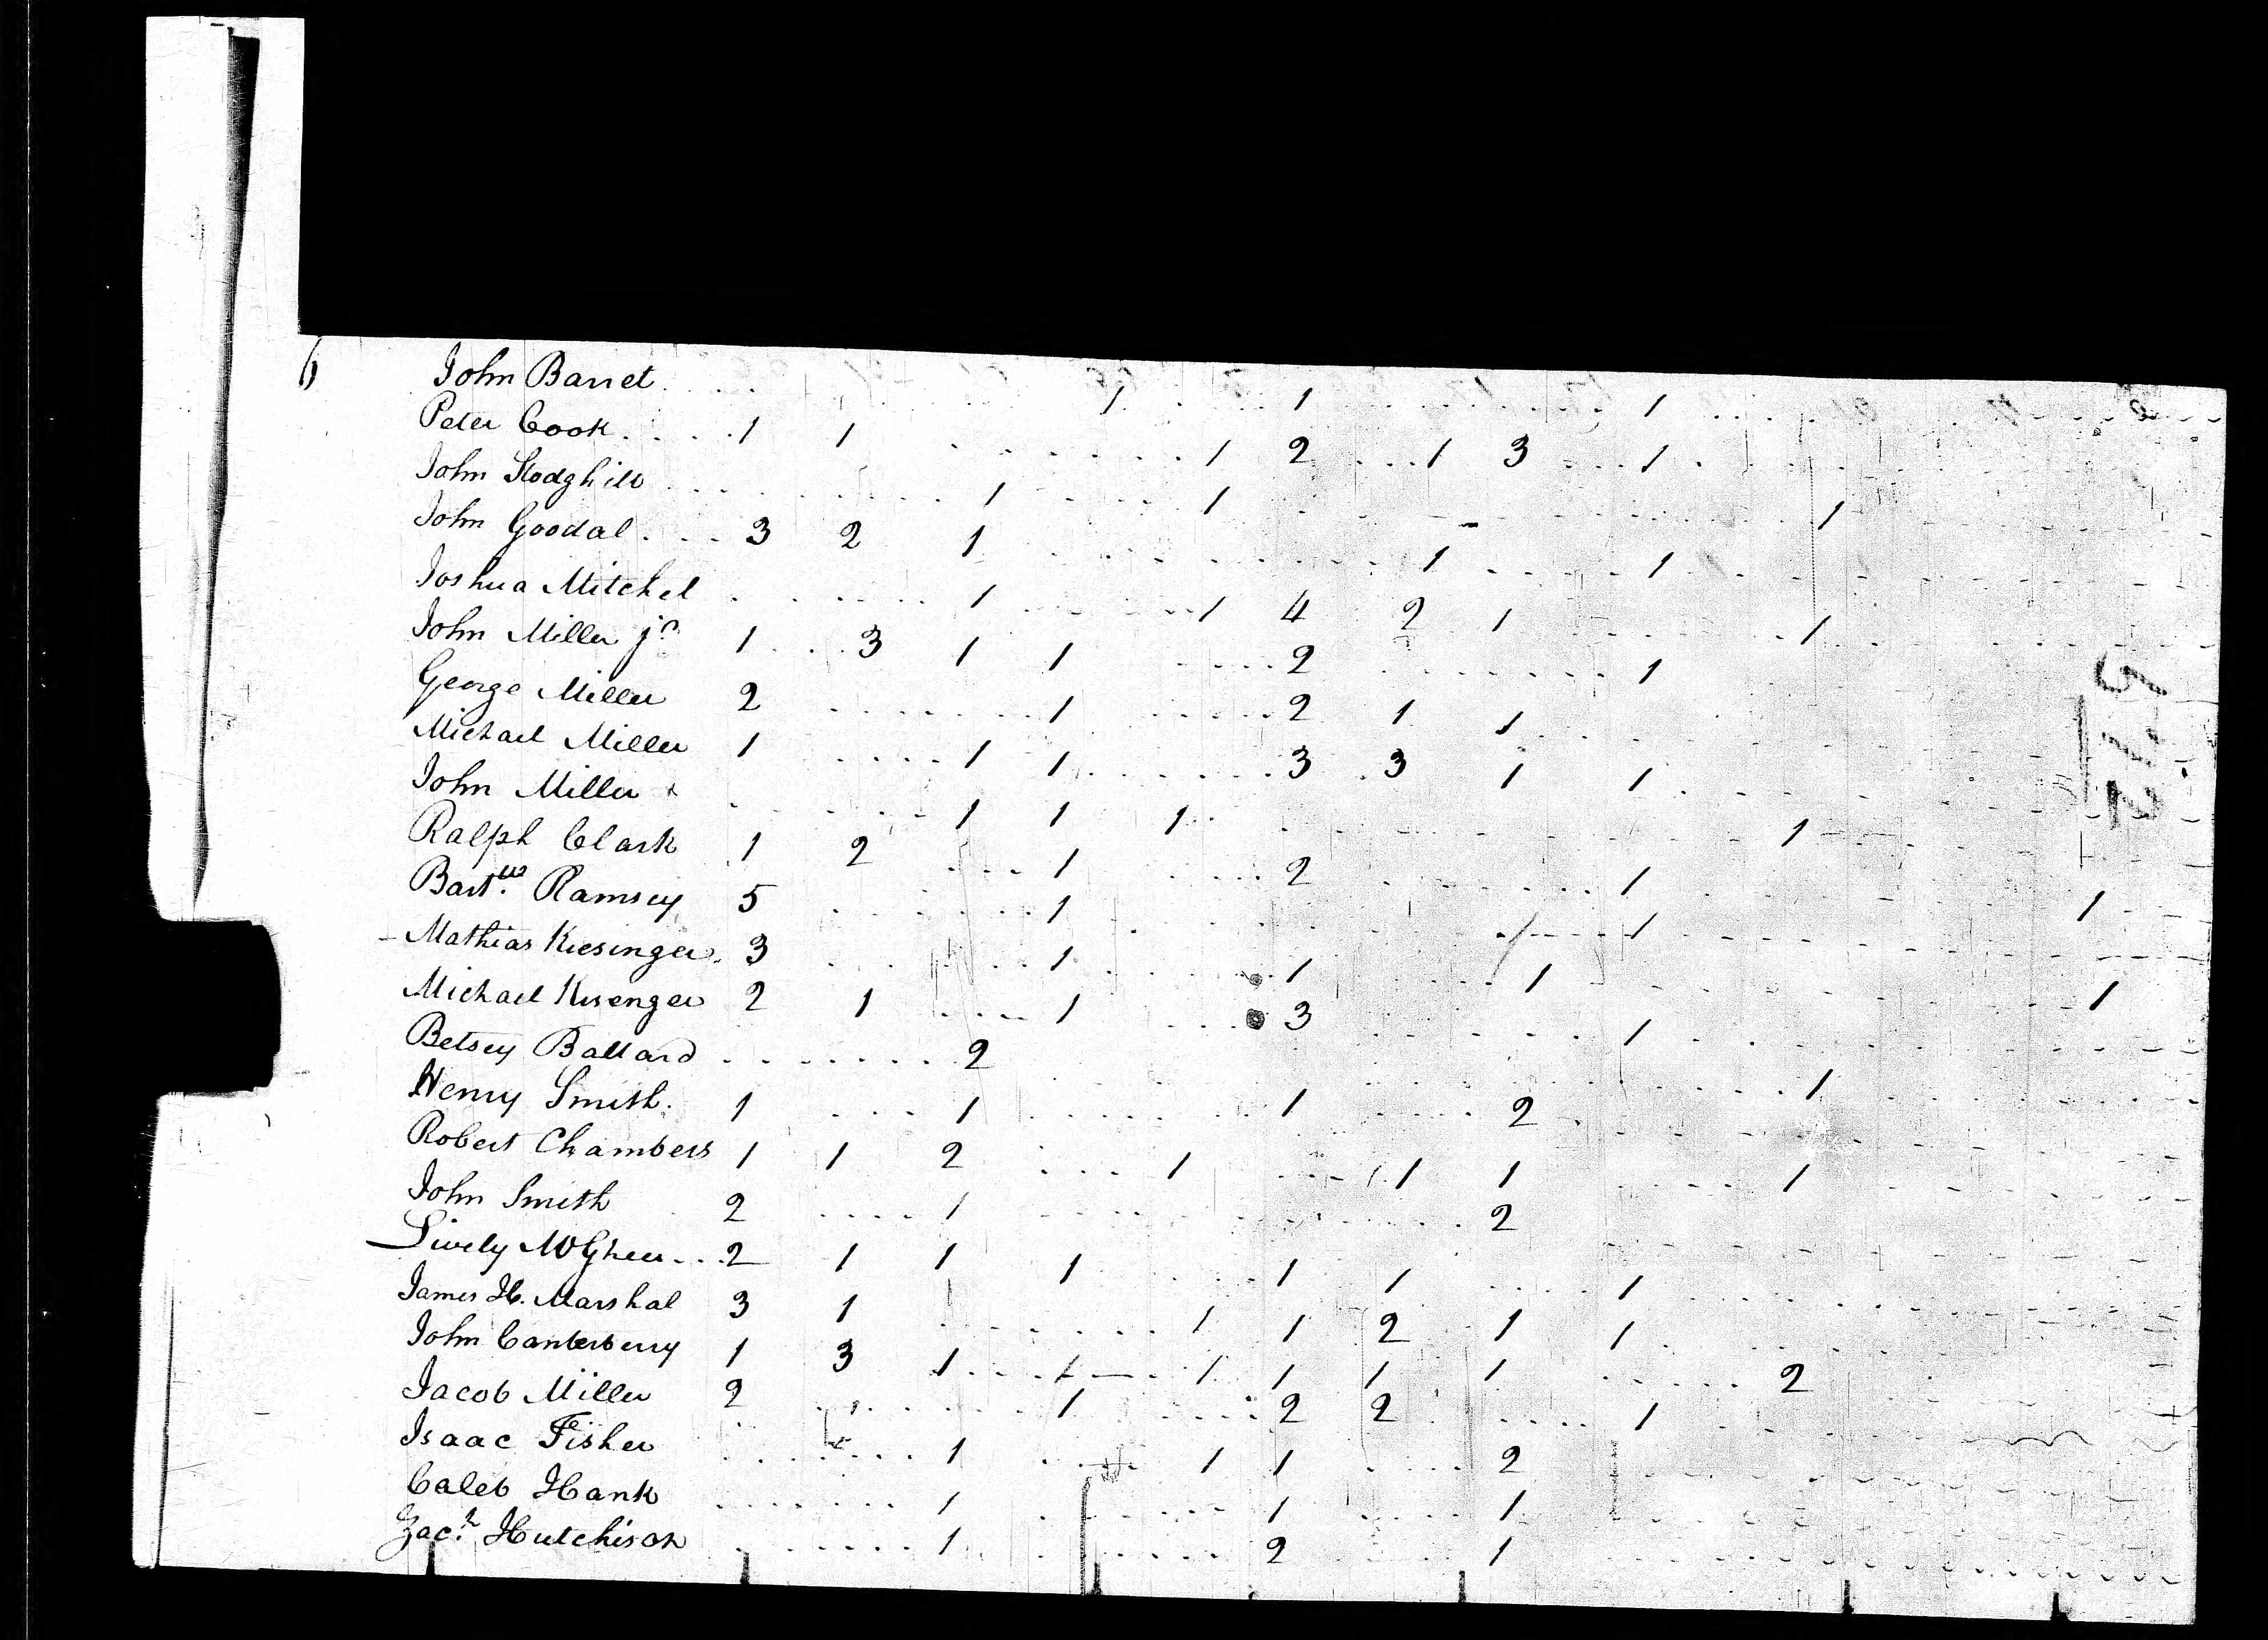 John Barret 1 1 1
Peter Cook 1 1 1 2 1 3 1
John Stodghill 1 1 1
John Goodal 3 2 1 1 1
Joshua Mitchel 1 1 4 2 1 1
John Miller jr 1 3 1 1 2 1
George Miller 2 1 2 1 1
Michael Miller 1 1 1 3 3 1 1
John Miller 1 1 1 1
Ralph Clark 1 2 1 2 1
Bartw. Ramsey 5 1 1 1 1
Mathias Kiesinger 3 1 1 1 1
Michael Kisenger 2 1 1 3 1
Betsey Ballard 2 1
Henry Smith 1 1 1 2
Robert Chambers 1 1 2 1 1 1 1
John Smith 2 1 2
Lively McGhee 2 1 1 1 1 1 1
James H. Marshal 3 1 1 1 2 1 1
John Canterberry 1 3 1 1 1 1 1 1 2
Jacob Miller 2 1 2 2 1
Isaac Fisher 1 1 1 2
Caleb Hank 1 1 1
Zach. Hutchison 1 2 1